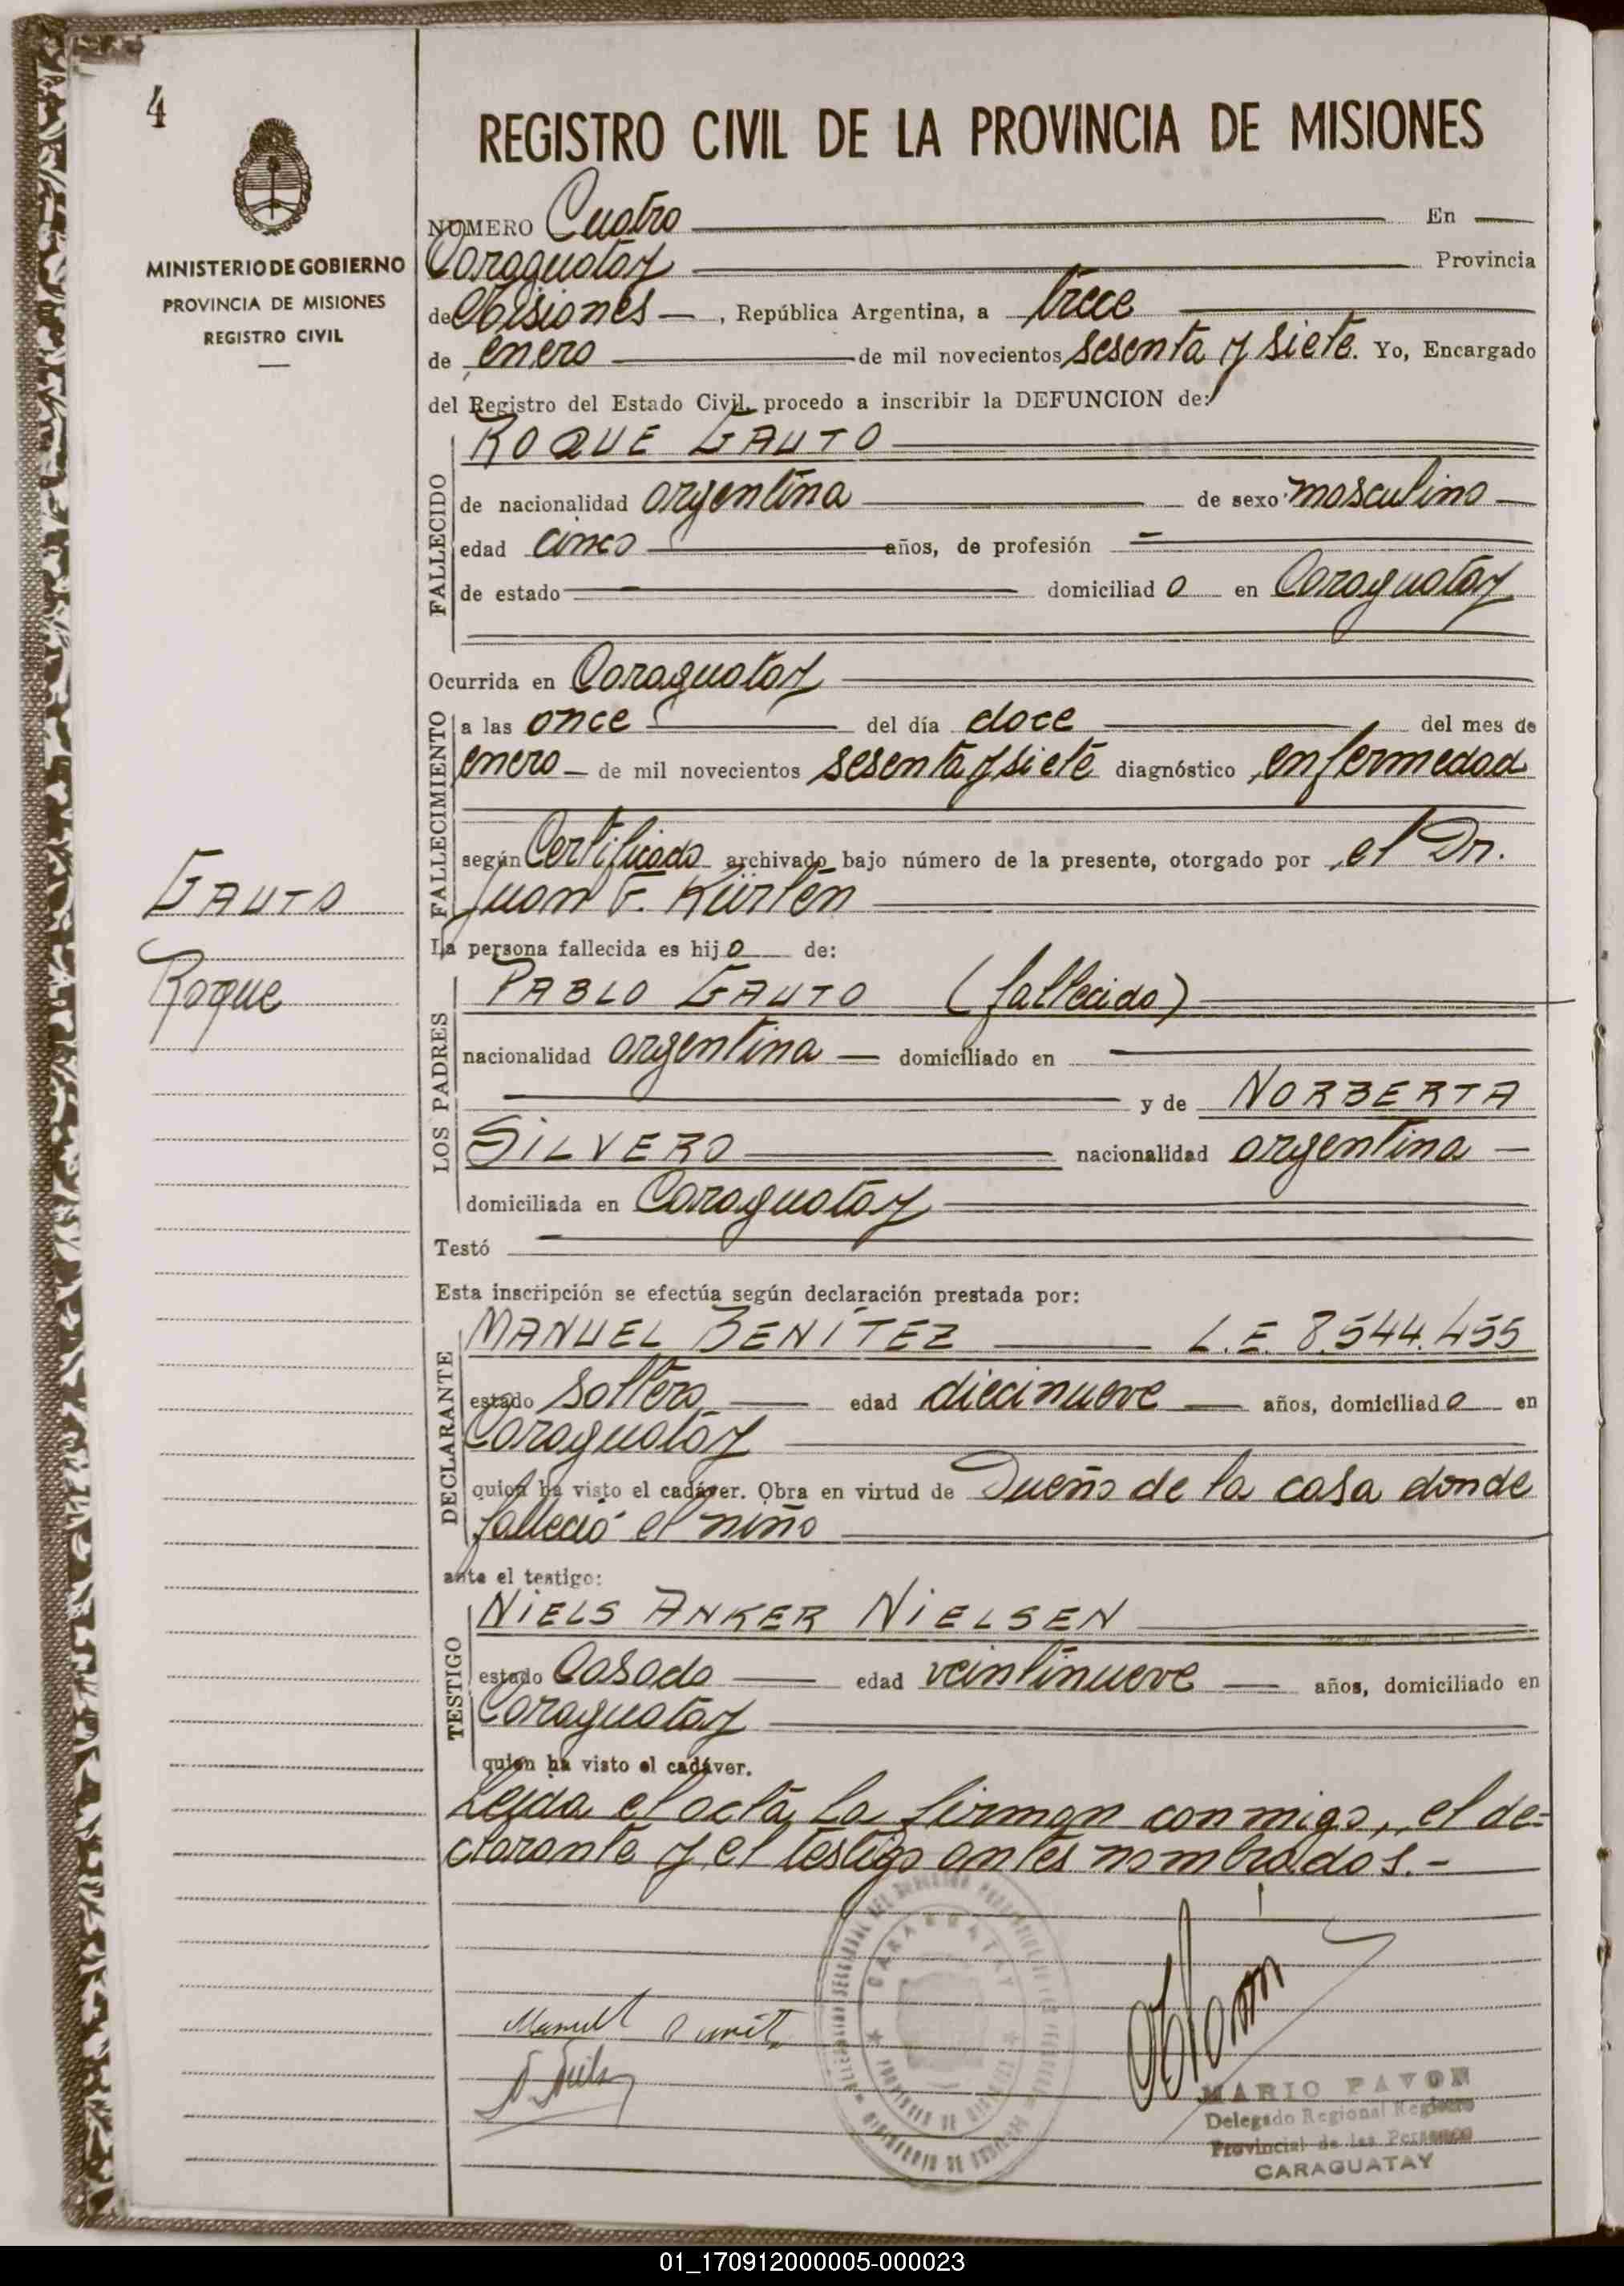 4
MINISTERIO DE GOBIERNO
PROVINCIA DE MISIONES
REGISTRO CIVIL
REGISTRO CIVIL DE LA PROVINCIA DE MISIONES
NUMERO Cuatro En
Caraguatay Provincia
de Misiones, República Argentina, a trece
de enero de mil novecientos sesenta y siete. Yo, Encargado
del Registro del Estado Civil, procedo a inscribir la DEFUNCION de:
FALLECIDO
ROQUE GAUTO
de nacionalidad argentina de sexo masculino
edad cinco años, de profesión —
de estado — domiciliad o en Caraguatay
Ocurrida en Caraguatay
FALLECIMIENTO
a las once del día doce del mes de
enero — de mil novecientos sesenta y siete diagnóstico enfermedad
según Certificado archivado bajo número de la presente, otorgado por el Dr.
Juan F. Kürten
GAUTO
Roque
La persona fallecida es hij o de:
LOS PADRES
PABLO GAUTO (fallecido)
nacionalidad argentina — domiciliado en —
— y de NORBERTA
SILVERO nacionalidad argentina —
domiciliada en Caraguatay
Testó —
Esta inscripción se efectúa según declaración prestada por:
DECLARANTE
MANUEL BENÍTEZ — L.E. 8.544.455
estado soltero — edad diecinueve — años, domiciliad o en
Caraguatay
quien ha visto el cadáver. Obra en virtud de Dueño de la casa donde
falleció el niño
ante el testigo:
TESTIGO
NIELS ANKER NIELSEN
estado Casado — edad veintinueve — años, domiciliado en
Caraguatay
quien ha visto el cadáver.
Leída el acta, la firman conmigo, el de-
clarante y el testigo antes nombrados.-
CARAGUATAY
PROVINCIA DE MISIONES
MINISTERIO DE GOBIERNO
Manuel
MARIO PAVON
Delegado Regional Registro
Provincial de las Personas
CARAGUATAY
01_170912000005-000023